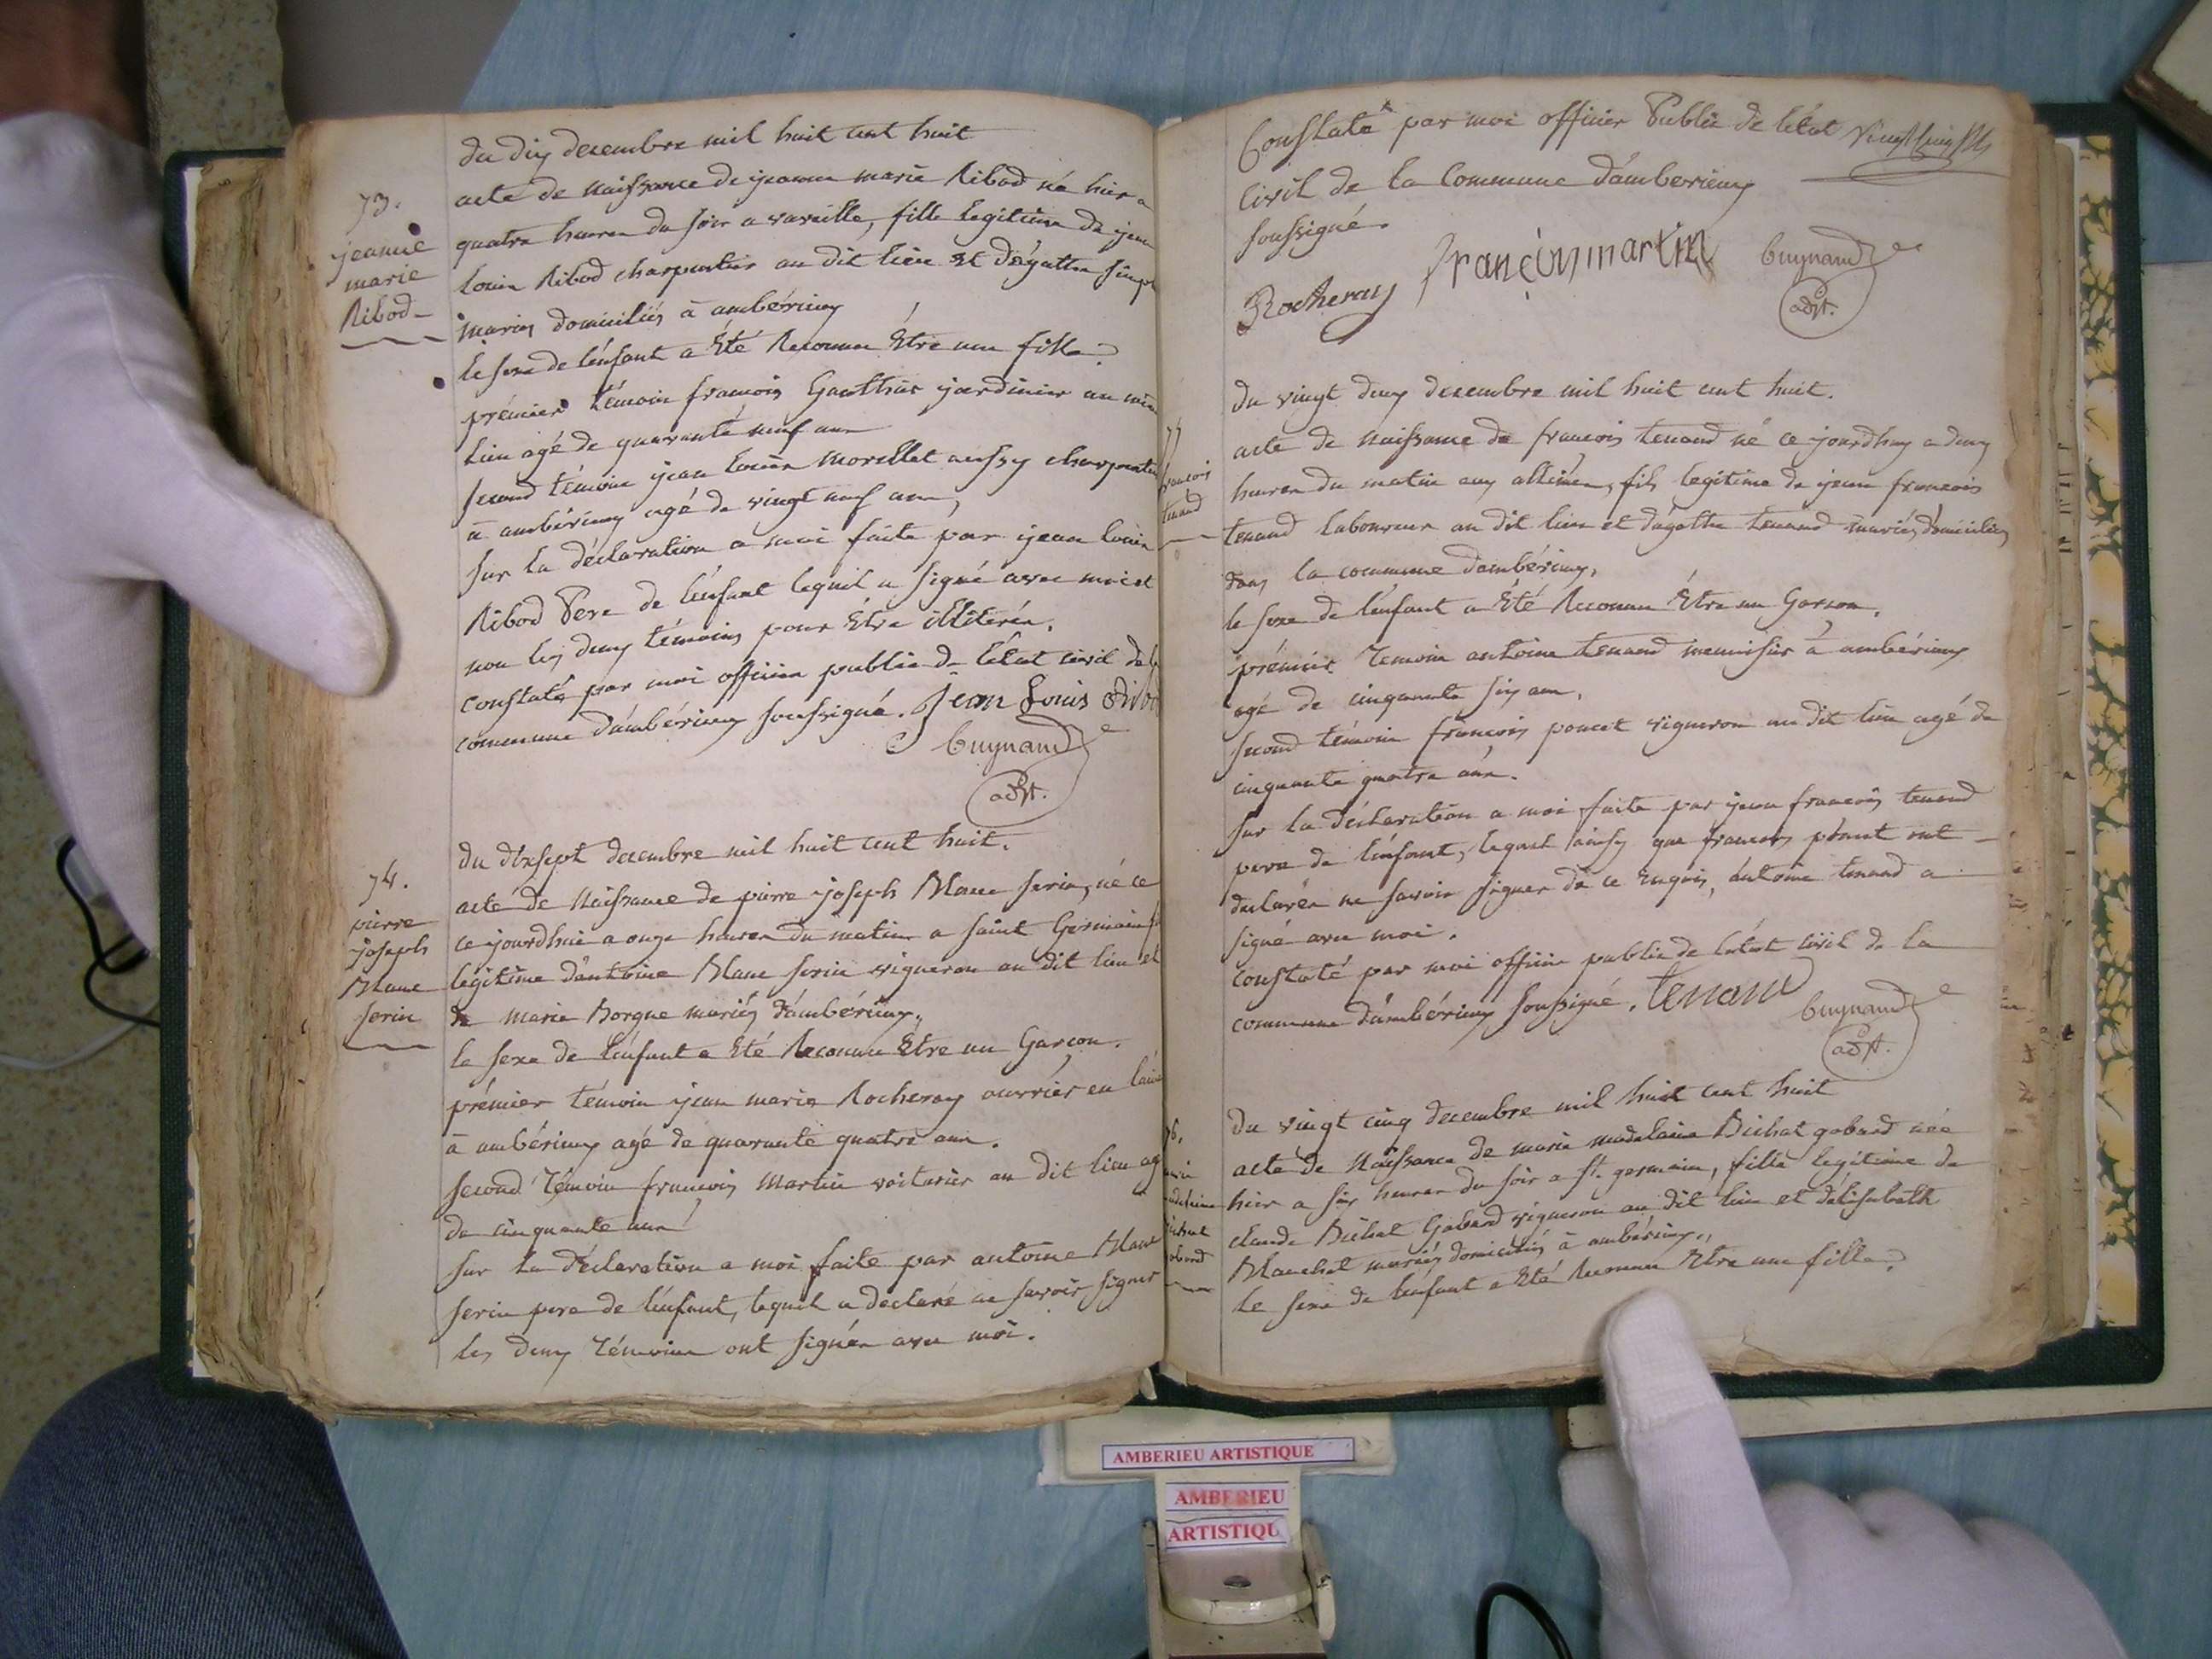 du dix decembre mil huit cent huit
73.
jeanne
marie
Ribod
acte de naissance de jeanne marie Ribod né hier a
quatre heures du soir a vareille, fille legitime de jean
Louis Ribod charpentier au dit lieu et d'ágathe
mariés domiciliés à ambérieux
le sexe de l'enfant a Eté Reconnu Etre une fille
prémier témoin francois Gauthier jardinier au
lieu agé de quarante neuf ans
second témoin jean Louis Morellet aussy charpentier
à ambérieux agé de vingt neuf ans,
sur la déclaration a moi faite par jean Louis
Ribod Pere de l'enfant lequel a signé avec moi et
non les deux témoins pour Etre illiterés.
constaté par moi officier public de l'état civil de la
commune d'ambérieux soussigné. Jean Louis Ribod
Cuynand
adjt.
du dixsept decembre mil huit cent huit.
74.
pierre
joseph
Blanc
serin
acte de Naissance de pierre joseph Blanc serin, né ce
ce jourdhui a onze heures du matin a saint Germain
légitime d'antoine Blanc serin vigneron au dit lieu et
de marie Borgne mariés d'ambérieux.
le sexe de l'enfant a Eté Reconnu Etre un Garçon.
prémier témoin jean marie Rocheray ouvrier en laine
à ambérieux agé de quarante quatre ans.
second témoin francois Martin voiturier au dit lieu agé
de cinquante ans
sur la déclaration a moi faite par antoine Blanc
serin pere de l'enfant, lequel a declaré ne savoir signer
les deux témoins ont signés avec moi.
Constaté par moi officier Public de l'état
Civil de la Commune d'amberieux
soussigné.
Rocheray françois martin Cuynand
adjt.
du vingt deux decembre mil huit cent huit.
francois
tenand
acte de naissance de francois tenand né ce jourdhuy a deux
heures du matin aux allimes, fils legitime de jean francois
tenand laboureur au dit lieu et d'agathe tenand mariés, domiciliés
dans la commune d'ambérieux,
le sexe de l'enfant a Eté Reconnu Etre un Garson.
prémier temoin antoine tenand menuisier à ambérieux
agé de cinquante six ans.
second témoin françois poncet vigneron au dit lieu agé de
cinquante quatre ans.
sur la déclaration a moi faite par jean francois tenand
pere de l'enfant, lequel ainsy que francois poncet ont
declarés ne savoir signer de ce Enquis, antoine tenand a
signé avec moi.
constaté par moi officier public de l'état civil de la
commune d'ambérieux soussigné. tenand
Cuynand
adjt.
du vingt cinq decembre mil huit cent huit
76.
acte de Naissance de marie madelaine Bichat gobard née
hier a six heures du soir a st. germain, fille legitime de
claude Bichat Gobard vigneron au dit lieu et d'élisabeth
Blanchet mariés domiciliés à ambérieux.
le sexe de l'enfant a Eté Reconnu Etre une fille
AMBERIEU ARTISTIQUE
AMBERIEU
ARTISTIQU